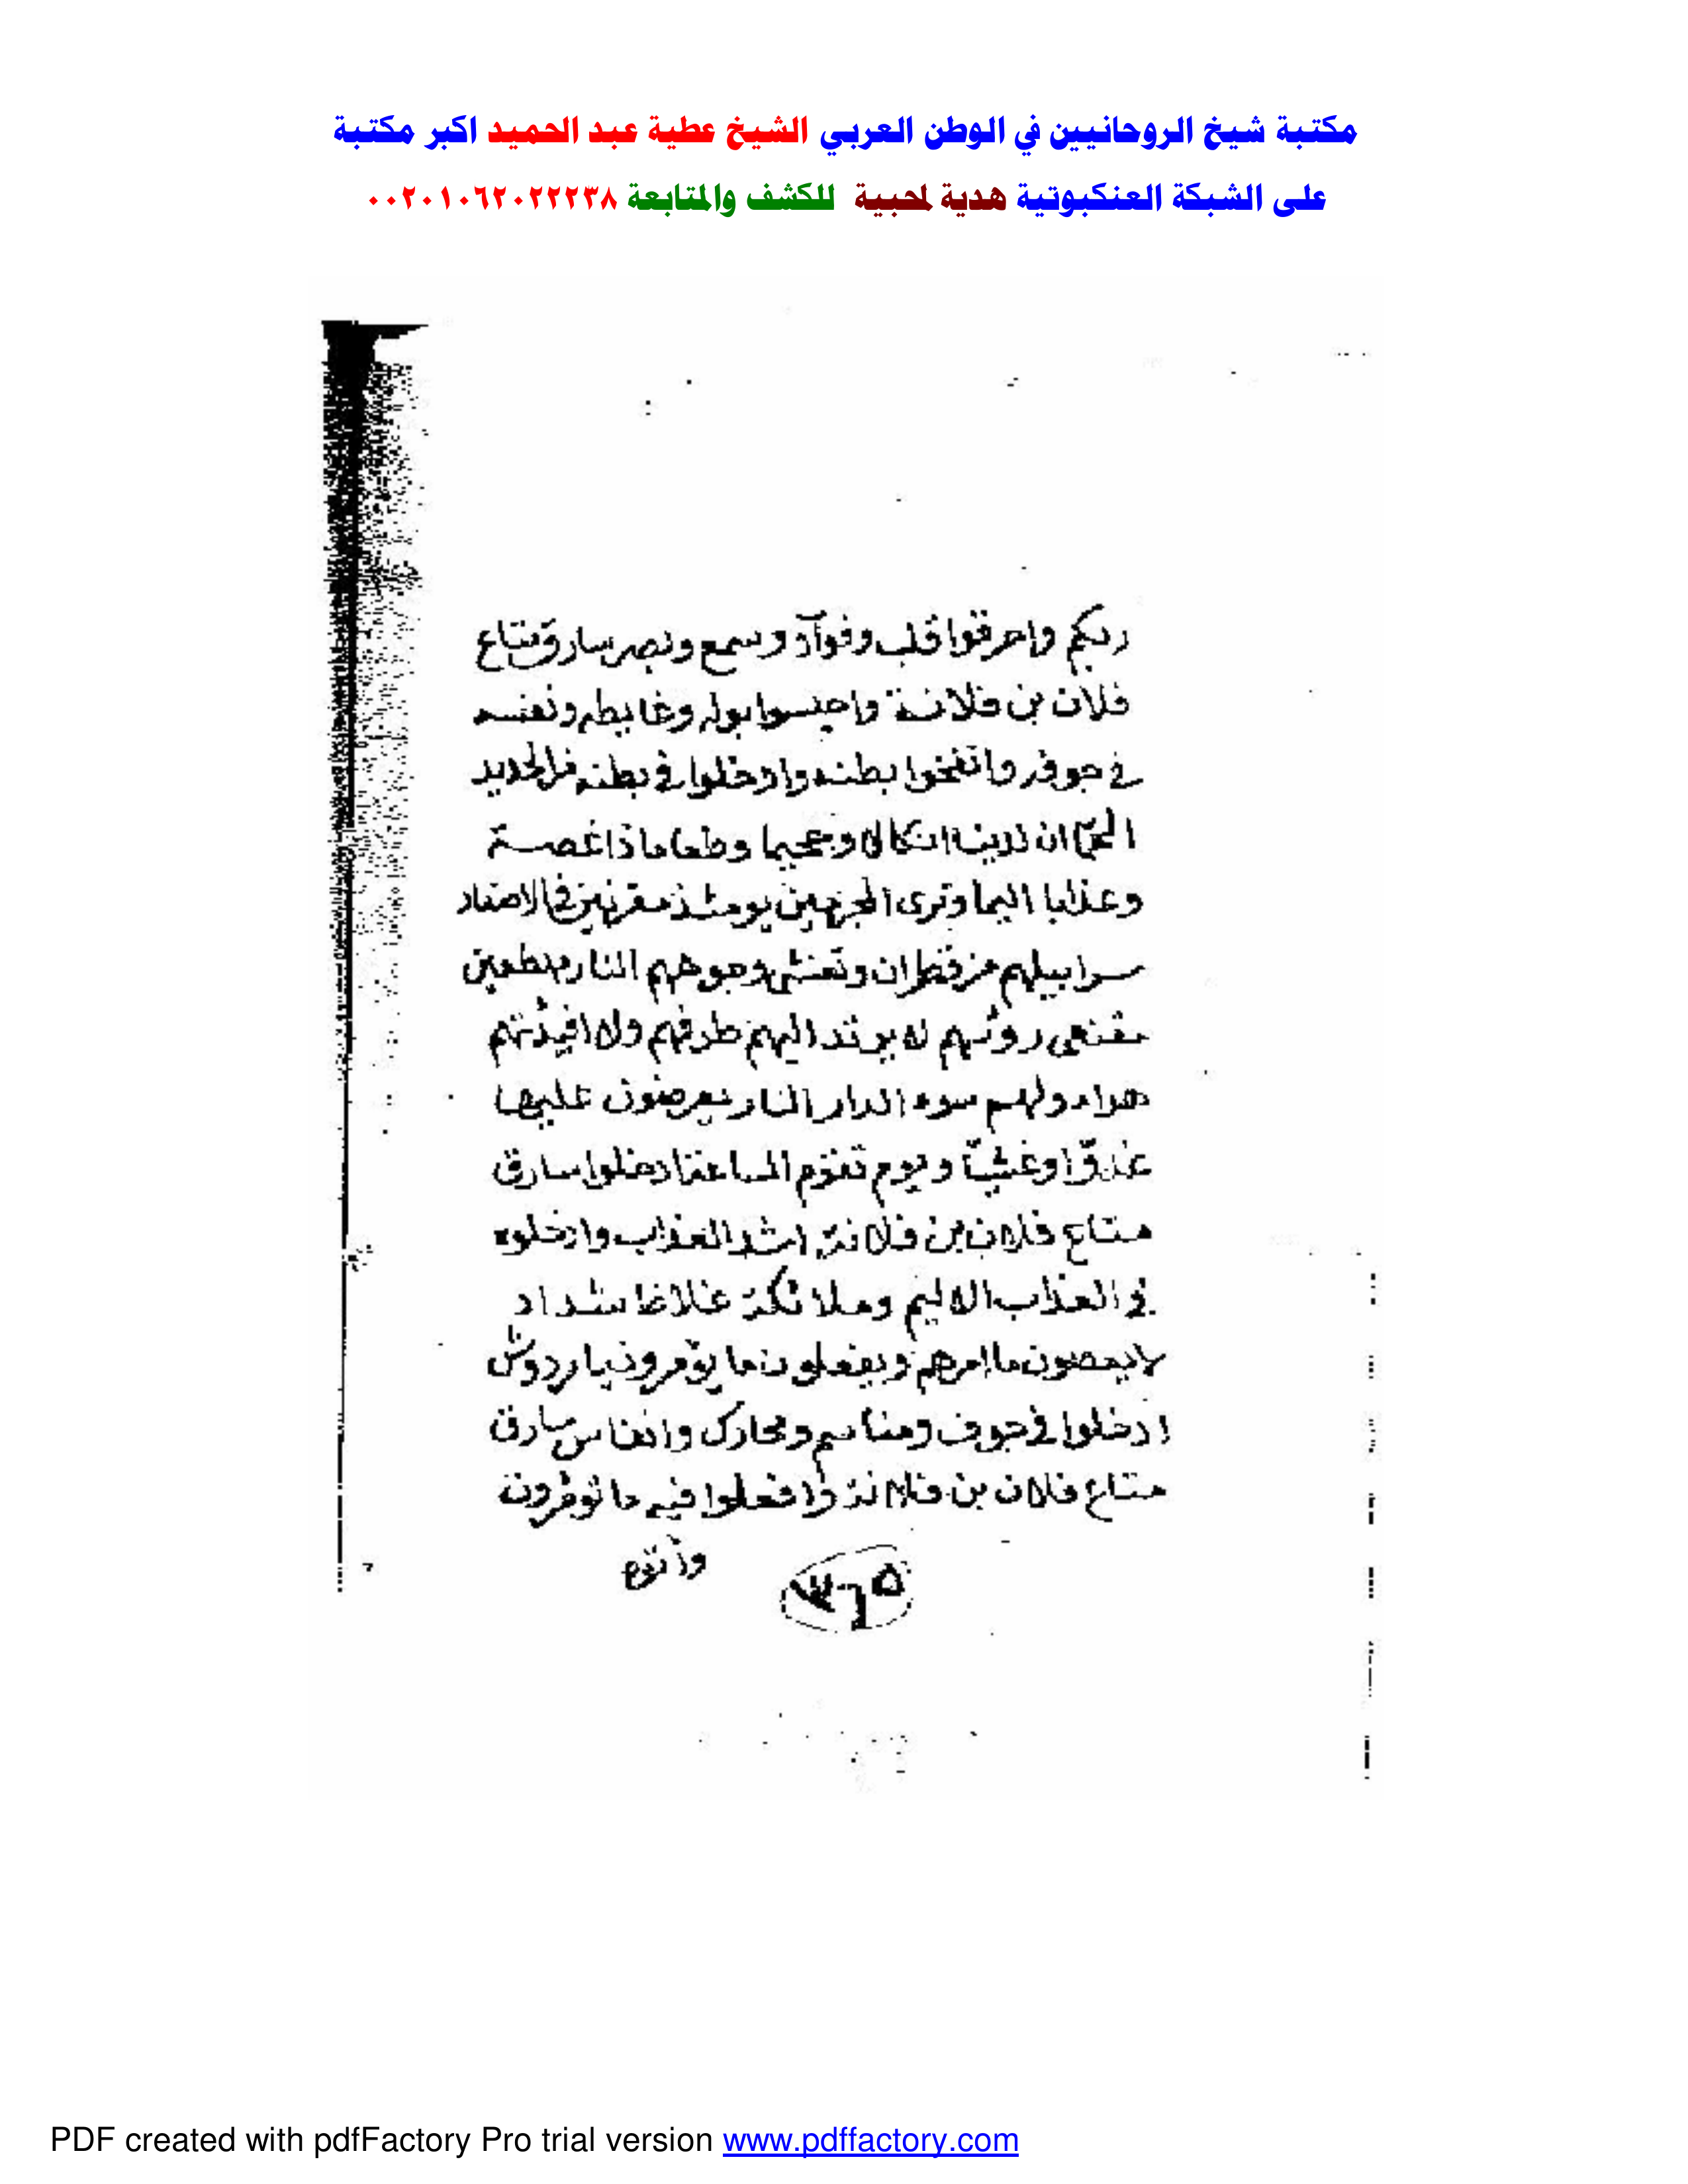 مكتبة شيخ الروحانيين في الوطن العربي الشيخ عطية عبد الحميد اكبر مكتبة
على الشبكة العنكبوتية هدية لمحبية للكشف والمتابعة ٠٠٢٠١٠٦٢٠٢٢٢٣٨
ربكم واحرقوا قلب وفوآد وسمع وبصر سارق متاع
فلان بن فلانة واحبسوا بوله وغايطه ونفسه
في جوفه وانفخوا بطنه وادخلوا في بطنه من الحديد
ان لدينا انكالا وجحيما وطعاما ذا غصة
وعذابا اليما وترى المجرمين يومئذ مقرنين في الاصفاد
سرابيلهم من قطران وتغشى وجوههم النار مهطعين
مقنعى روئسهم لا يرتد اليهم طرفهم ولا افيدتهم
هواء ولهم سوء الدار النار يعرضون عليها
غدوّا وعشيّا ويوم تقوم الساعة ادخلوا سارق
متاع فلان بن فلانة اشد العذاب وادخلوه
في العذاب الاليم وملائكة غلاظ شداد
لا يعصون ما امرهم ويفعلون ما يؤمرون يا ردوش
ادخلوا في جوف ومناسم ومحارك وانفاس سارق
متاع فلان بن فلانة وافعلوا فيه ما تؤمرون
٣٦٥
PDF created with pdfFactory Pro trial version www.pdffactory.com